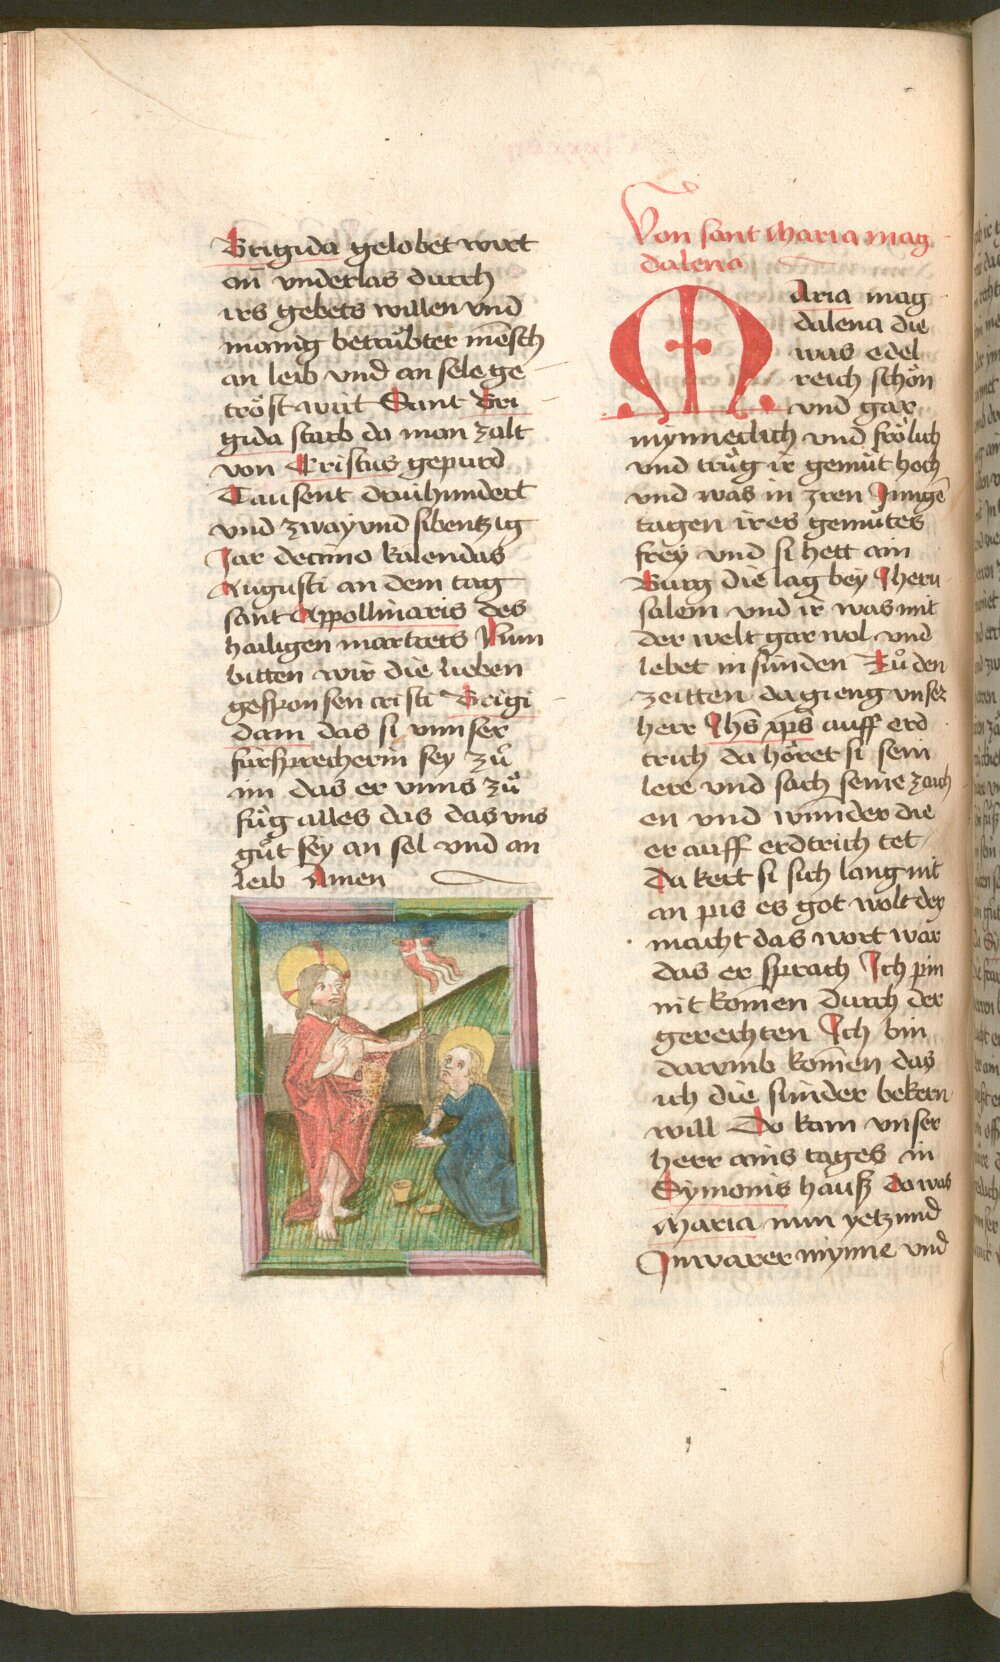 Brigida gelobet wirt
on̄ vnderlas durch
irs gebets willen vnd
manig betrůbter mēsch
an leib vnd an sele ge
tröst wirt Sant Bri
gida starb da man zalt
von Cristus gepurd
Tausent drauhundert
vnd zway vnd sibentzig
Jar decimo kalendas
Augusti an dem tag
sant Appollinaris des
hailigen martrers Nun
bitten wir die lieben
gesponsen cristi Brigi
dam das si vnnser
fürsprecherin sey zů
im das er vnns zů
füg alles das das vns
gůt sey an sel vnd an
leib Amen
Von sant Maria mag
dalena
MAria mag
dalena die
was edel
reich schön
vnd gar
mynneclich vnd frölich
vnd trůg ir gemüt hoch
vnd was in iren Jungē
tagen ires gemůtes
frey vnd si hett ain
Burg die lag bey Jheru
salem vnd ir was mit
der welt gar wol vnd
lebet in sünden Zů den
zeitten da gieng vnser
herr Jhs̄ xp̄s auff erd
trich da höret si sein
lere vnd sach seine zaich
en vnd wunder die
er auff erdtrich tet
Da kert si sich lang nit
an pis es got wolt der
macht das wort war
das er sprach Ich pin
nit komen durch der
gerechten Ich bin
darumb komen das
ich die sünder bekern
will Do kam vnser
herr ains tages in
Symonis hauß do was
Maria nun yetzund
In warer mynne vnd